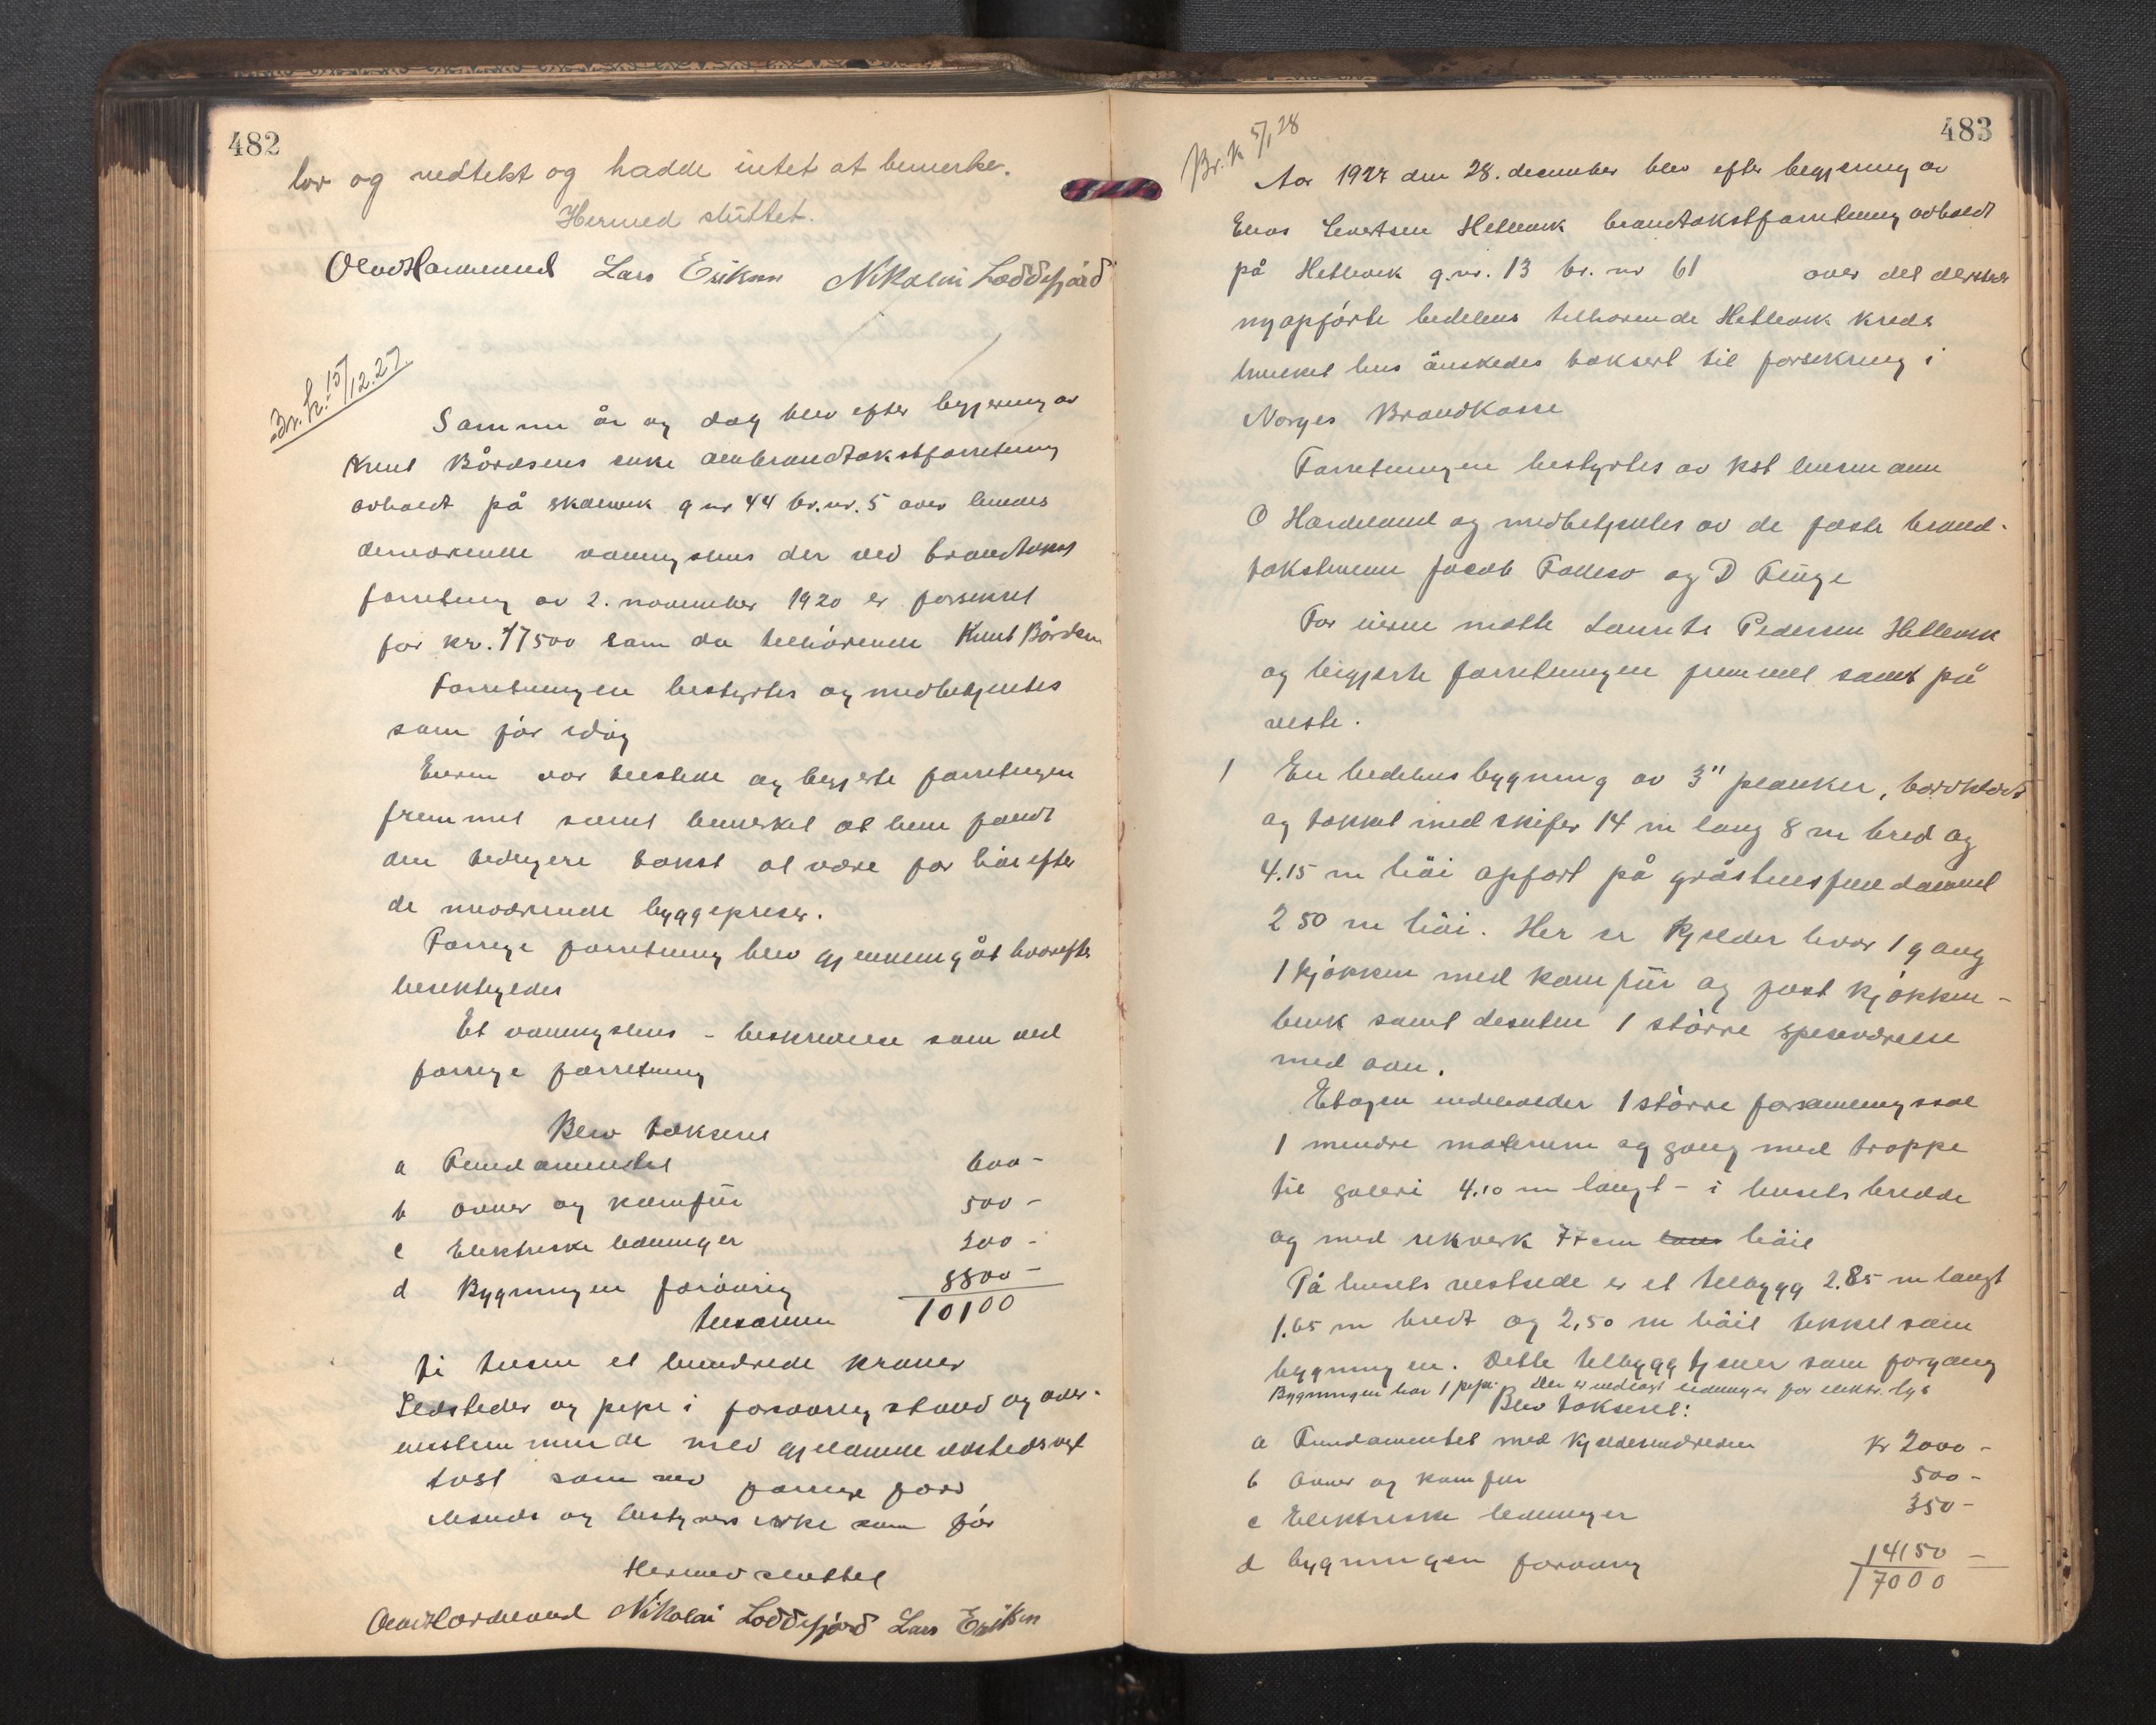 482
lov og vedtekt og hadde intet at bemerke.
Hermed sluttet.
Olav Hardeland Lars Eriksen Nikolai Loddefjord
Br.k. 15/12.27.
Samme år og dag blev efter begjæring av
Knut Bårdsens enke ombrandtakstforretning
avholdt på Skålevik g nr 44 br.nr. 5 over hendes
derværende vaaningshus der ved brandtakst
forretning av 2. november 1920 er forsikret
for kr. 17500 som da tilhørende Knut Bårdsen
Forretningen bestyrtes og medbetjentes
som før idag
Eieren var tilstede og begjerte forretningen
fremmet samt bemerket at hun fandt
den tidligere takst at være for høi efter
de nuværende byggepriser.
Forrige forretning blev gjennemgåt hvorefter
besiktigedes
Et vaaningshus - beskrivelse som ved
forrige forretning
Blev takseret
a Fundamentet 600 -
b ovner og komfür 500 -
c Elektriske ledninger 200 -
d Bygningen forøvrig 8800 -
tilsammen 10100
ti tusen et hundrede kroner
Ildsteder og pipe i forsvarlig stand og over-
ensstemmende med gjeldende ildstedsved
tekst som ved forrige forr
Mænds og bestyrers virke som før
Hermed sluttet
Olav Hardeland Nikolai Loddefjord Lars Eriksen
483
Br.k 5/1 28
Aar 1927 den 28. december blev efter begjering av
Enos Sivertsen Hetlevik brandtakstforretning avholdt
på Hetlevik g.nr. 13 br. nr 61 over det derstedes
nyopførte bedehus tilhørende Hetlevik kreds
hvilket hus ønskedes taksert til forsikring i
Norges Brandkasse
Forretningen bestyrtes av kst lensmann
O Hardeland og medbetjentes av de faste brand-
takstmenn Jacob Follesø og D Fluge
For eieren møtte Laurits Pedersen Hetlevik
og begjærte forretningen fremmet samt på
viste.
1 En bedehusbygning av 3" planker, bordklædt
og tækket med skifer 14 m lang 8 m bred og
4.15 m høi opført på gråstensfundament
2 50 m høi. Her er kjelder hvor 1 gang
1 kjøkken med komfür og fast kjøkken-
benk samt desuten 1 større spiseværelse
med ovn.
Etagen indeholder 1 større forsamlingssal
1 mindre møterum og gang med trappe
til galeri 4.10 m langt - i husets bredde
og med rekverk 77 cm høit
På husets vestside er et tilbygg 2.85 m langt
1.65 m bredt og 2,50 m høit tekket som
bygningen. Dette tilbygg tjener som forgang
Bygningen har 1 pipe. Der er indlagt ledninger for elektr. lys
Blev takseret:
a Fundamentet med kjelderindreden kr 2000 -
b Ovner og komfur 500 -
c Elektriske ledninger 350 -
d bygningen forøvrig 14150 -
17000